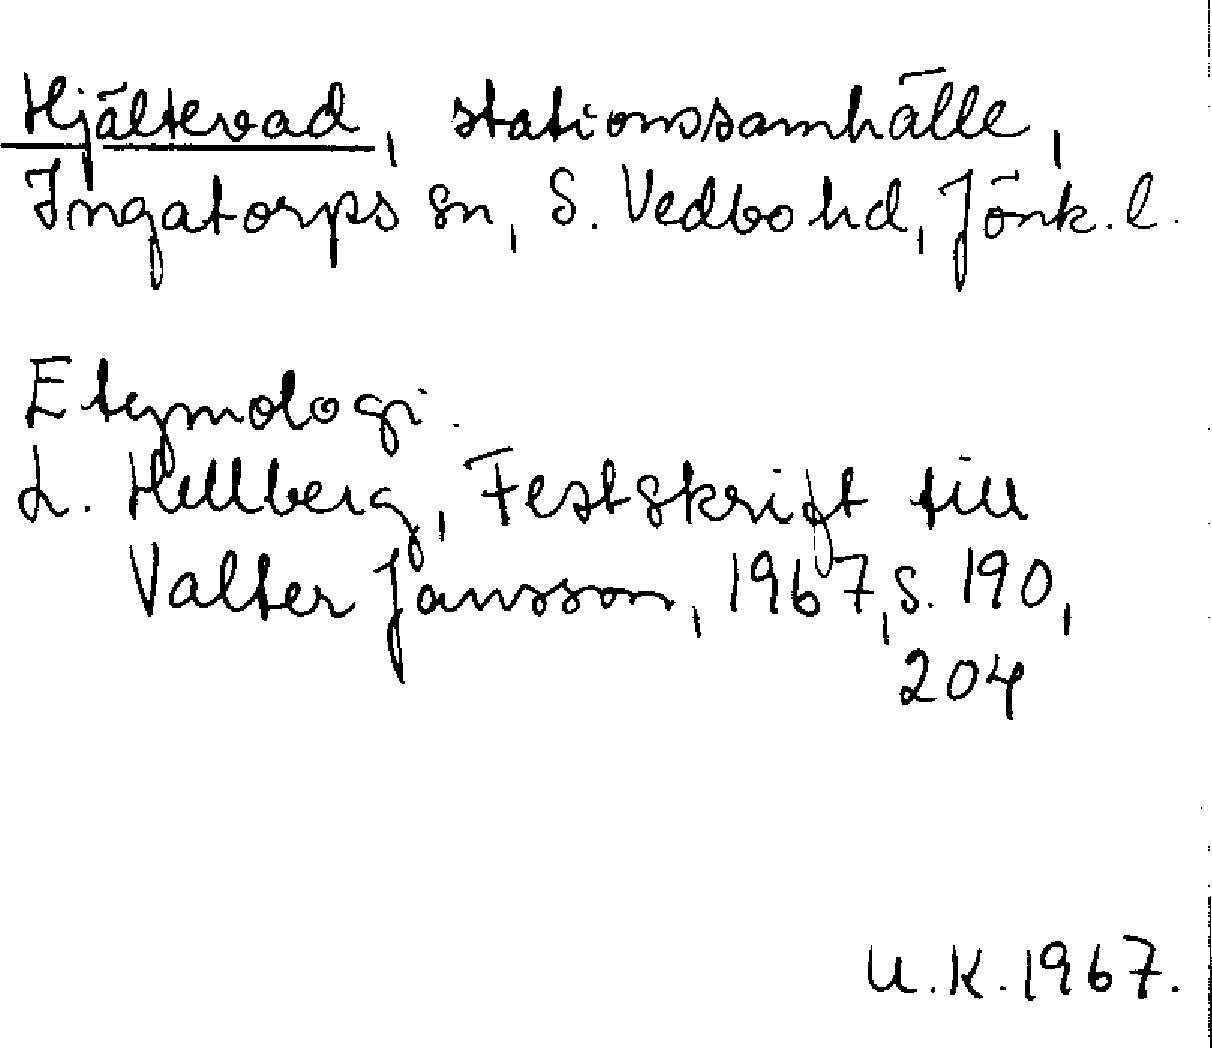 Hjältevad, stationssamhälle,
Ingatorps sn, S. Vedbo hd, Jönk. l.
Etymologi.
L. Hellberg, Festskrift till
Valter Jansson, 1967, s. 190,
204
U.K. 1967.